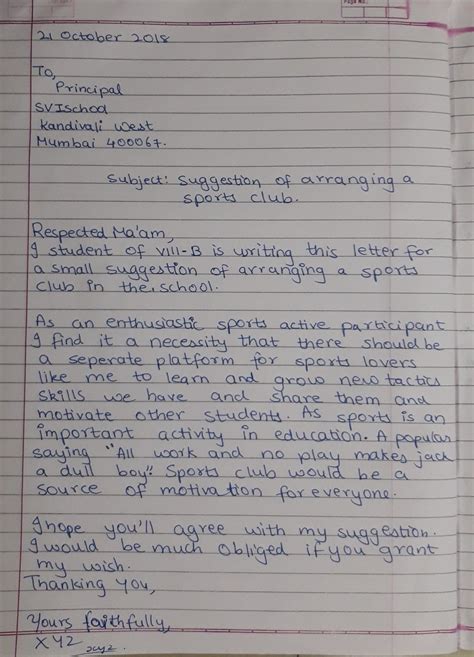 Page No.:
21 October 2018
To,
Principal
SVISchool
Kandivali West
Mumbai 400067.
Subject: Suggestion of arranging a
sports club.
Respected Ma'am,
I student of VIII-B is writing this letter for
a small suggestion of arranging a sports
club in the school.
As an enthusiastic sports active participant
I find it a necessity that there should be
a seperate platform for sports lovers
like me to learn and grow new tactics
skills we have and share them and
motivate other students. As sports is an
important activity in education. A popular
saying "All work and no play makes jack
a dull boy". Sports club would be a
source of motivation for everyone.
I hope you'll agree with my suggestion.
I would be much obliged if you grant
my wish.
Thanking You,
Yours faithfully,
XYZ
xyz.